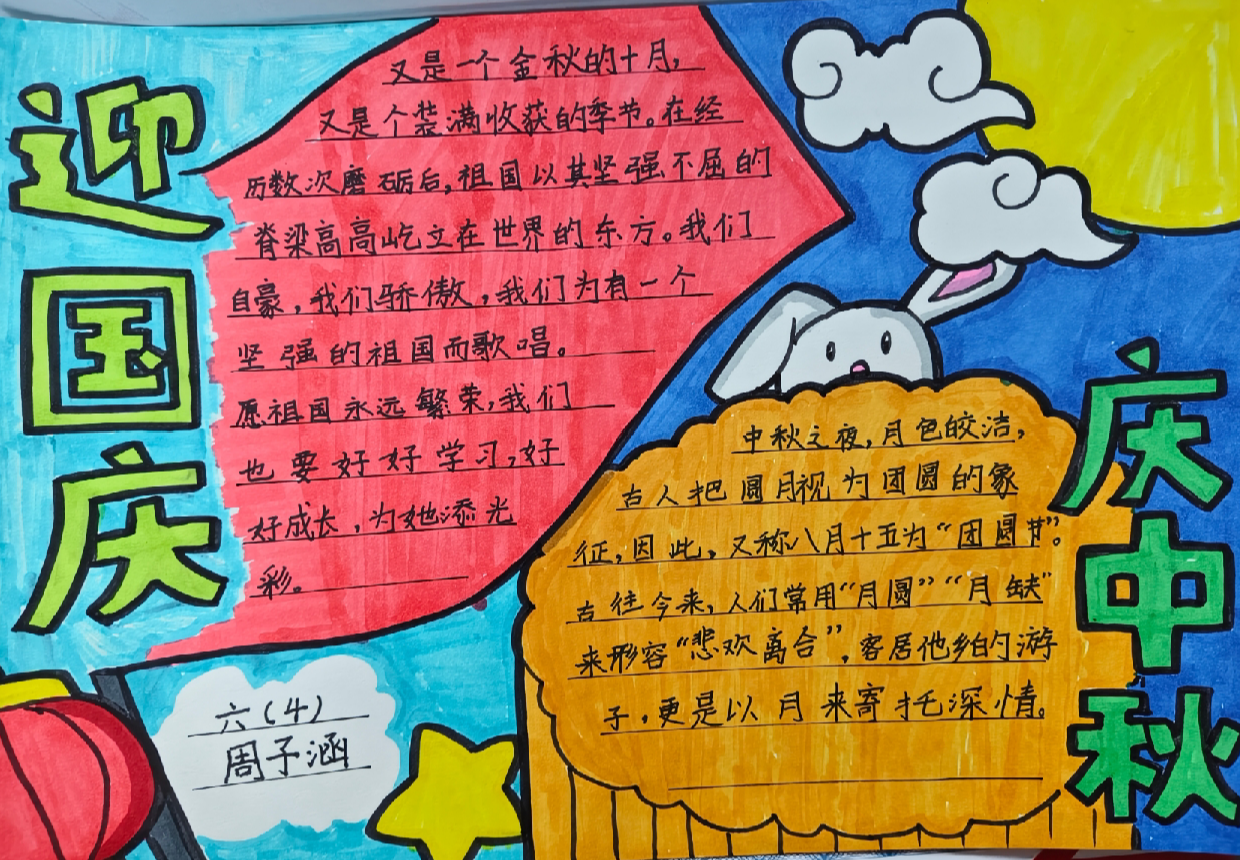 迎国庆
又是一个金秋的十月，
又是个装满收获的季节。在经
历数次磨砺后，祖国以其坚强不屈的
脊梁高高屹立在世界的东方。我们
自豪，我们骄傲，我们为有一个
坚强的祖国而歌唱。
愿祖国永远繁荣，我们
也要好好学习，好
好成长，为她添光
彩。
六（4）
周子涵
庆中秋
中秋之夜，月色皎洁，
古人把圆月视为团圆的象
征，因此，又称八月十五为“团圆节”。
古往今来，人们常用“月圆”“月缺”
来形容“悲欢离合”，客居他乡的游
子，更是以月来寄托深情。